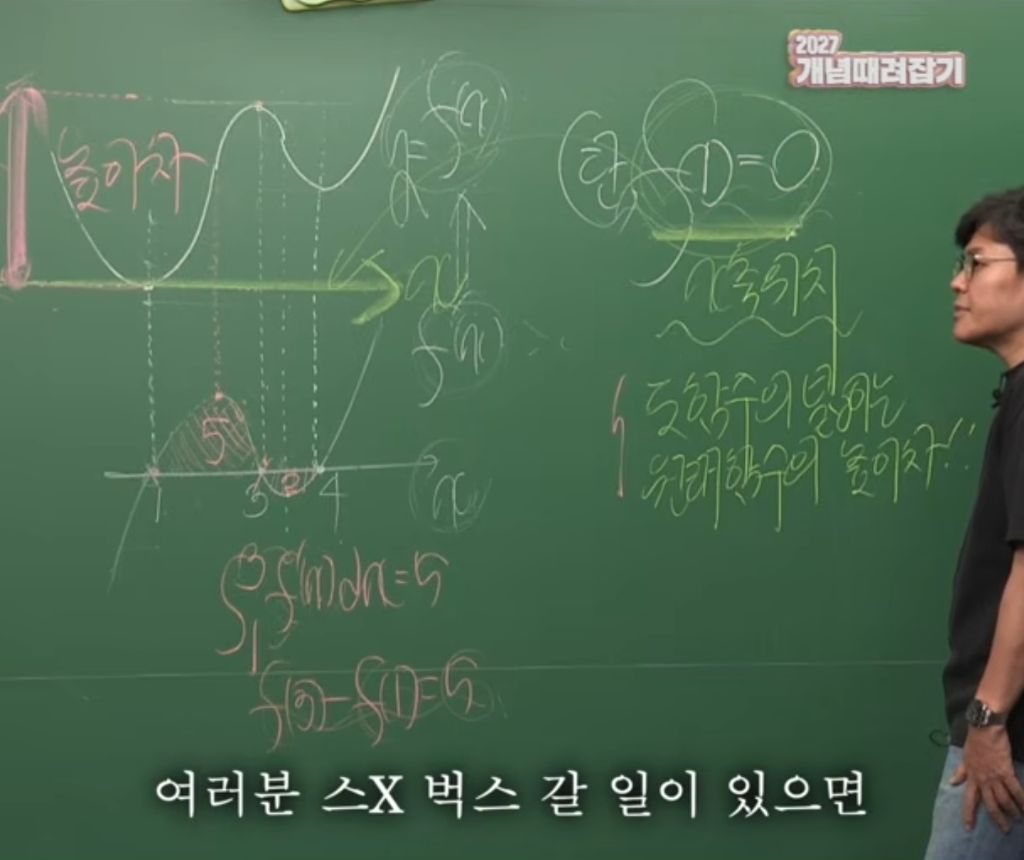 2027
개념때려잡기
높이차
y = f(x)
탄, f(x) = 0
x
x축 위치
f'(x)
도함수의 넓이는
원래함수의 높이차!!
5
2
1 3 4
x
∫₁³ f'(x)dx = 5
f(3) - f(1) = 5
여러분 스X 벅스 갈 일이 있으면